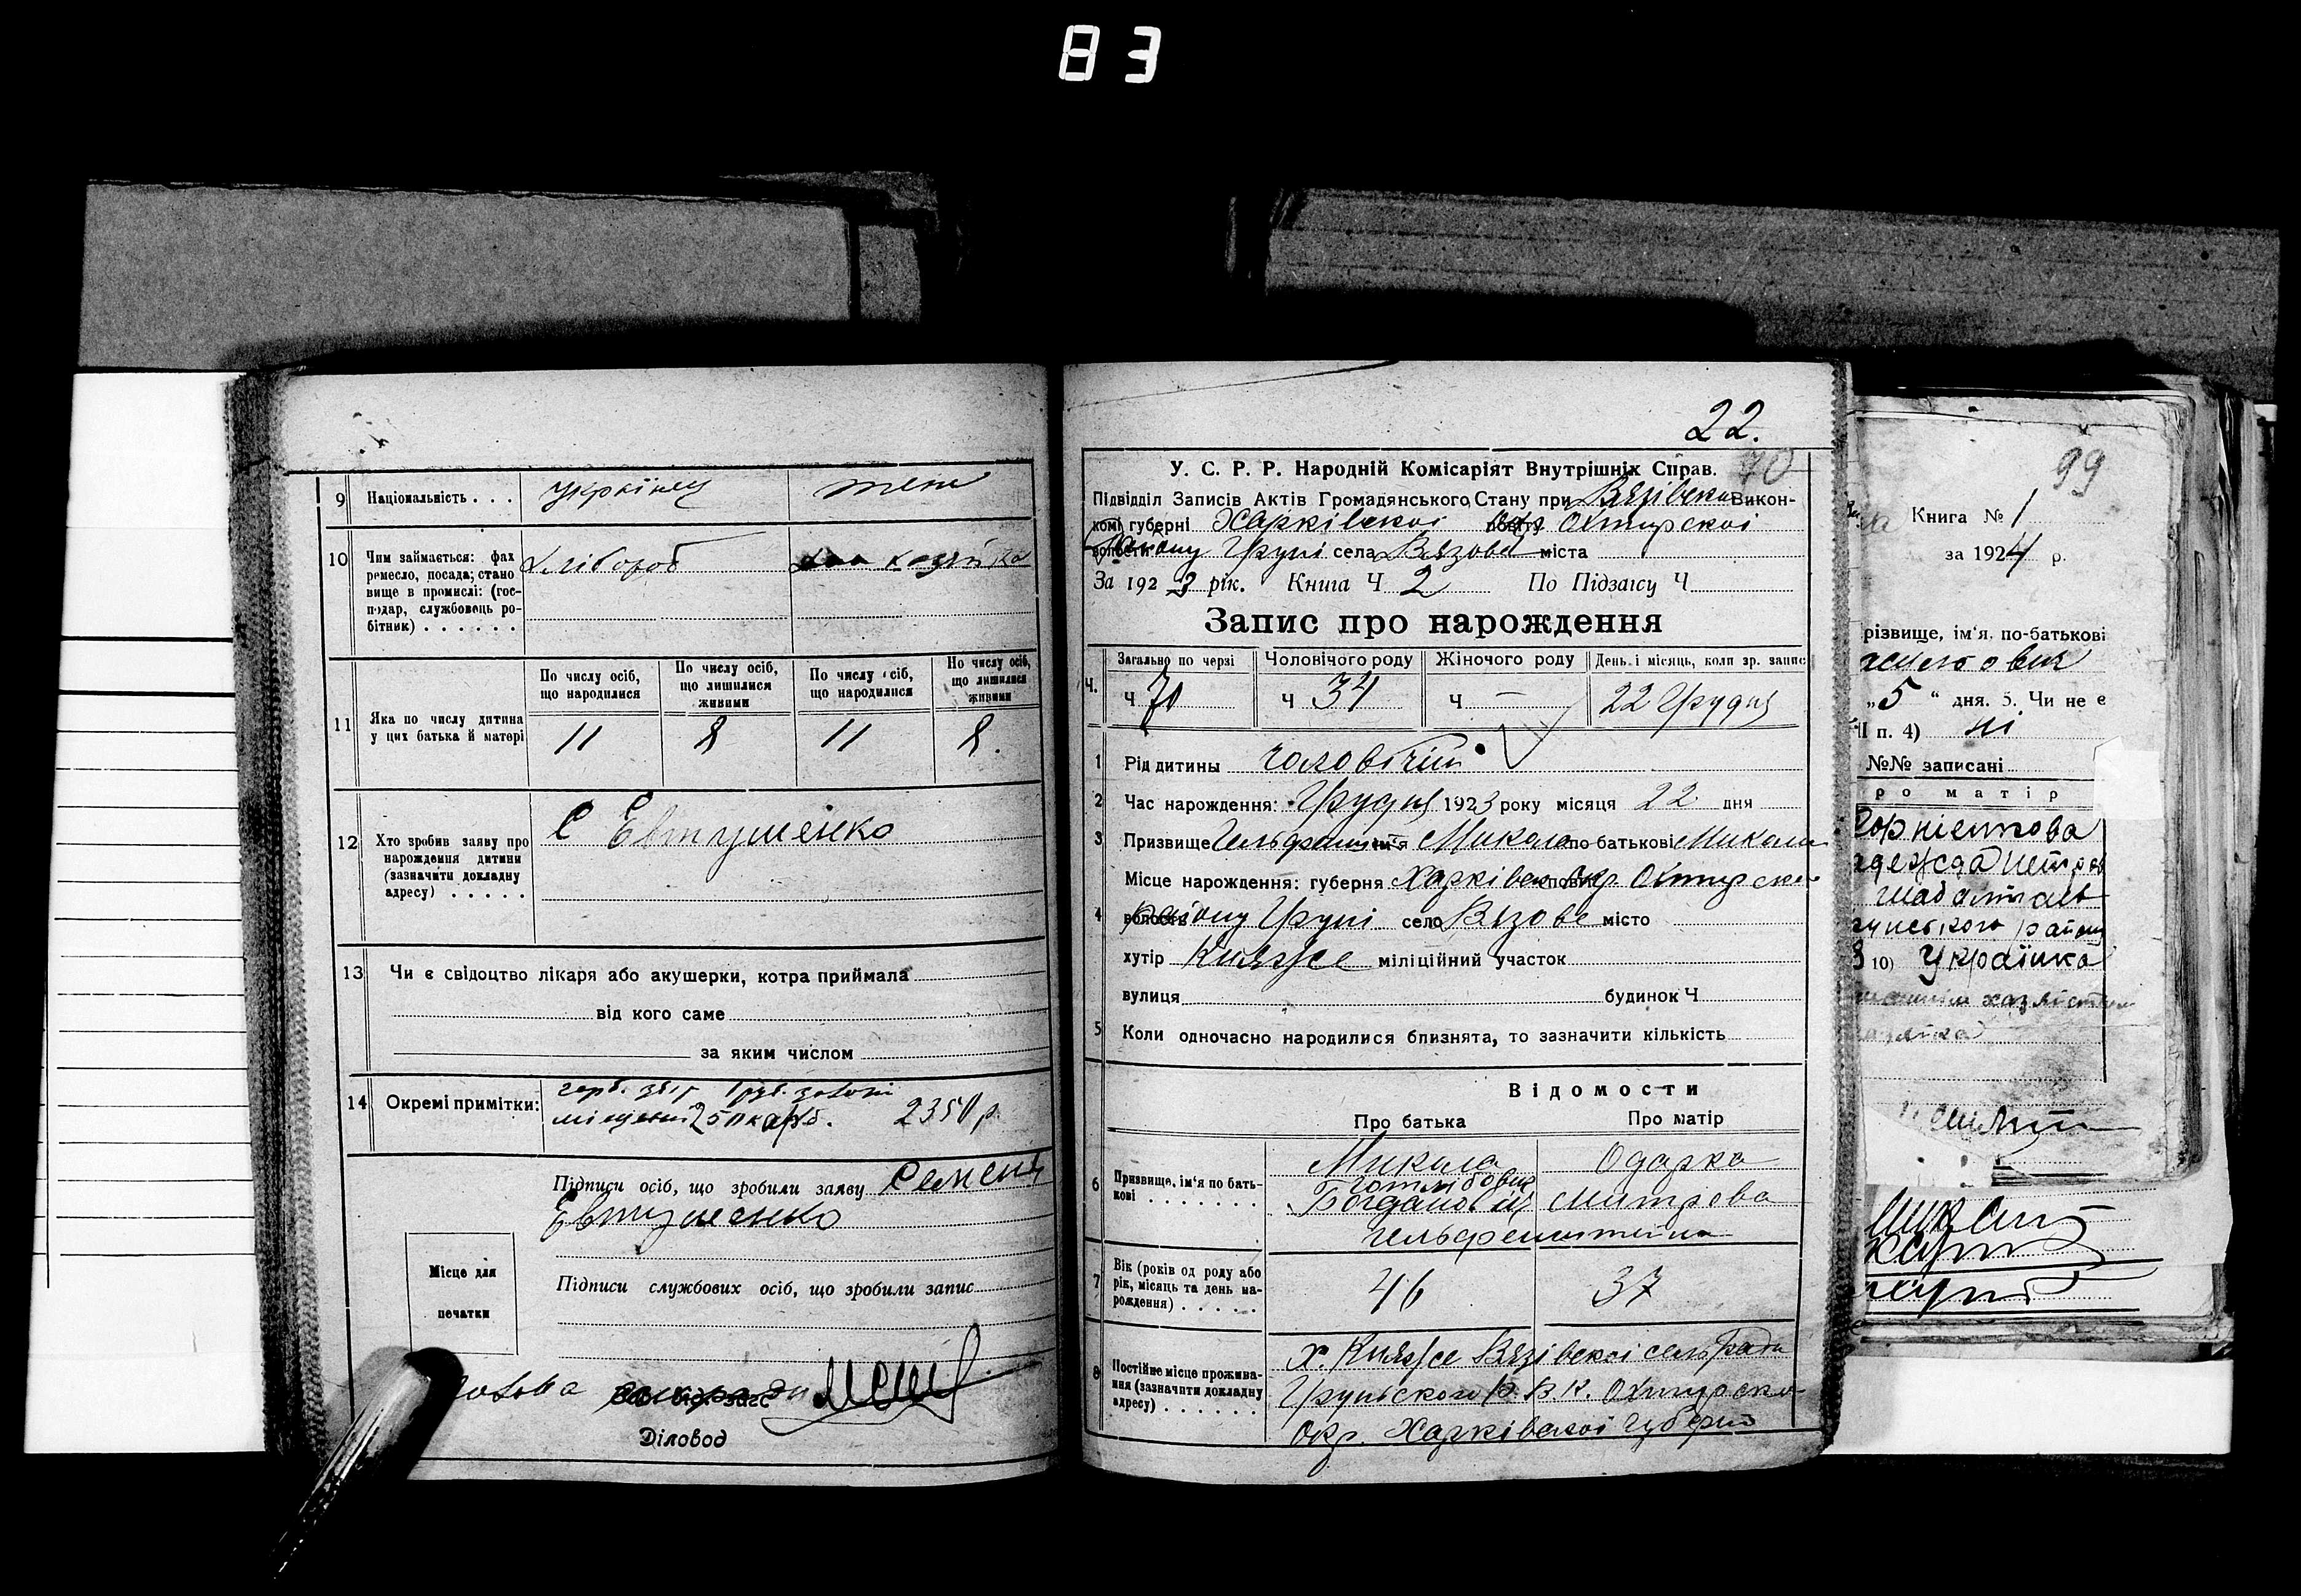 83
9 Національность . . . Українец теж
10 Чим займається: фах ремесло, посада; стано вище в промислі: (гос- подар, службовець ро- бітник) . . . . . . хлібороб хазяйка
По числу осіб, що народилися
По числу осіб, що лишилися живими
По числу осіб, що народилися
По числу осіб, що лишилися живими
11 Яка по числу дитина у цих батька й матері 11 8 11 8.
12 Хто зробив заяву про нарождення дитини (зазначити докладну адресу) . . . . . С Евтушенко
13 Чи є свідоцтво лікаря або акушерки, котра приймала
від кого саме
за яким числом
14 Окремі примітки: герб. збір 1 руб. золоті
місцевий 25 п кар. 2350 р.
Підписи осіб, що зробили заяву Семен
Евтушенко
Місце для печатки
Підписи службових осіб, що зробили запис
Голова
Діловод
22.
У. С. Р. Р. Народній Комісаріят Внутрішніх Справ. 70
Підвідділ Записів Актів Громадянського Стану при Вязівском Викон-
комі губерні Харківскоі повіту Окр Охтирскоі
волости району Груні села Вязове міста
За 1923 рік. Книга Ч 2 По Підзагсу Ч
Запис про нарождення
Загально по черзі Чоловічого роду Жіночого роду День і місяць, коли зр. запис
Ч. Ч 70 Ч 34 Ч — 22 Грудня
1 Рід дитины чоловічий
2 Час нарождення: Грудня 1923 року місяця 22 дня
3 Призвище Гельфенштейн ім'я Микола по батькові Микола
Місце нарождення: губерня Харківск повіт Окр. Охтирскоі
4 волость району Груні село Вязове місто
хутір Княже міліційний участок
вулиця будинок Ч
5 Коли одночасно народилися близнята, то зазначити кількість
Відомости
Про батька Про матір
6 Призвище, ім'я по бать- кові . . . . . . .
Микола Одарка
Готлібович
Богданович Митрова
Гельфенштейн
7 Вік (років од роду або рік, місяць та день на- рождення) . . . . . 46 37
8 Постійне місце прожива- ння (зазначити докладну адресу) . . . . . .
Х. Княже Вязівскоі сельради
Груньского Р. В К. Охтирско
окр. Харківскоі губерні
99
Книга № 1
за 1924 р.
різвище, ім'я, по-батькові
„5“ дня. 5. Чи не є
ІІ п. 4) ні
№№ записані
ро матір
10) Українка